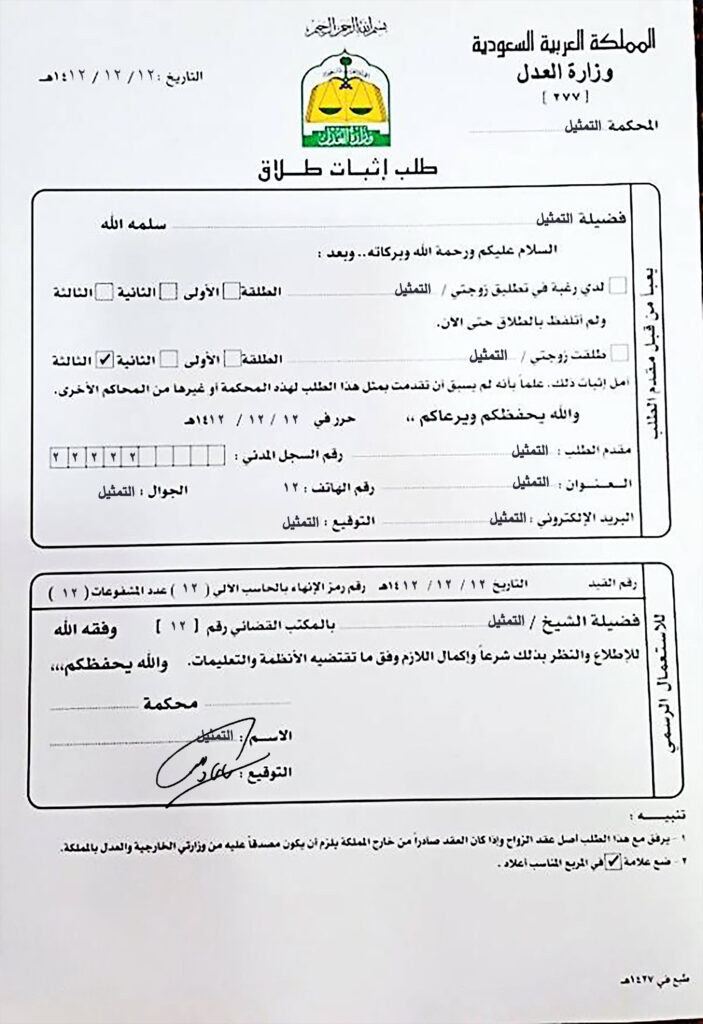 بسم الله الرحمن الرحيم
المملكة العربية السعودية
وزارة العدل
[ ٢٧٧ ]
المحكمة التمثيل
التاريخ : ١٢ / ١٢ / ١٤١٢هـ
وزارة العدل
طلب إثبات طلاق
يعبأ من قبل مقدم الطلب
فضيلة التمثيل سلمه الله
السلام عليكم ورحمة الله وبركاته.. وبعد :
لدي رغبة في تطليق زوجتي / التمثيل الطلقة الأولى الثانية الثالثة
ولم أتلفظ بالطلاق حتى الآن.
طلقت زوجتي / التمثيل الطلقة الأولى الثانية ✓ الثالثة
آمل إثبات ذلك. علماً بأنه لم يسبق أن تقدمت بمثل هذا الطلب لهذه المحكمة أو غيرها من المحاكم الأخرى.
والله يحفظكم ويرعاكم ،، حرر في ١٢ / ١٢ / ١٤١٢هـ
مقدم الطلب : التمثيل رقم السجل المدني : ٢ ٢ ٢ ٢ ٢
العـنـوان : التمثيل رقم الهاتف : ١٢ الجوال : التمثيل
البريد الإلكتروني : التمثيل التوقيع : التمثيل
للاستعمال الرسمي
رقم القيد التاريخ ١٢ / ١٢ / ١٤١٢هـ رقم رمز الإنهاء بالحاسب الآلي ( ١٢ ) عدد المشفوعات ( ١٢ )
فضيلة الشيخ / التمثيل بالمكتب القضائي رقم [ ١٢ ] وفقه الله
للإطلاع والنظر بذلك شرعاً وإكمال اللازم وفق ما تقتضيه الأنظمة والتعليمات. والله يحفظكم،،،
محكمة
الاسـم : التمثيل
التوقيع :
تنبيـه :
١ - يرفق مع هذا الطلب أصل عقد الزواج وإذا كان العقد صادراً من خارج المملكة يلزم أن يكون مصدقاً عليه من وزارتي الخارجية والعدل بالمملكة.
٢ - ضع علامة ✓ في المربع المناسب أعلاه .
طبع في ١٤٢٧هـ